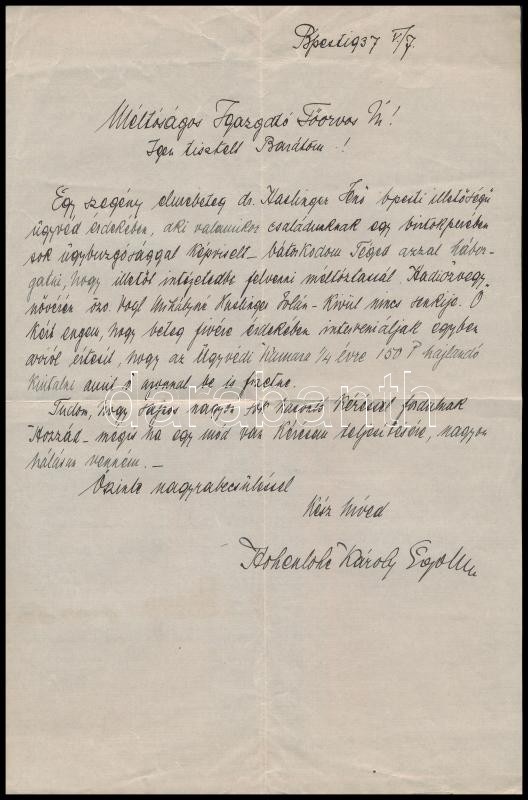 Bpest 1937 V/7.
Méltóságos Igazgató Főorvos Úr!
Igen tisztelt Barátom!
Egy szegény elmebeteg dr. Haslinger Jenő bpesti illetőségű
ügyvéd érdekében, aki valamikor családunknak egy birtokperében
sok ügybuzgósággal képviselt – bátorkodom Téged azzal hábor-
gatni, hogy illetőt intézetedbe felvenni méltóztassál. Hadiözvegy
nővérén özv. Vogl Mihályné Haslinger – kivül nincs senkije. Ő
kért engem, hogy beteg fivére érdekében interveniáljak egyben
arról értesit, hogy az Ügyvédi Kamara 1/4 évre 150 P hajlandó
kiutalni amit ő nyomal be is fizetne.
Tudom, hogy sajnos nagyon sok hasonló kéréssel fordulnak
Hozzád – mégis ha egy mód van kérésem teljesitésére, nagyon
hálásan venném. –
Őszinte nagyrabecsüléssel
kész hived
Hohenlohe Károly Egon
darabanth